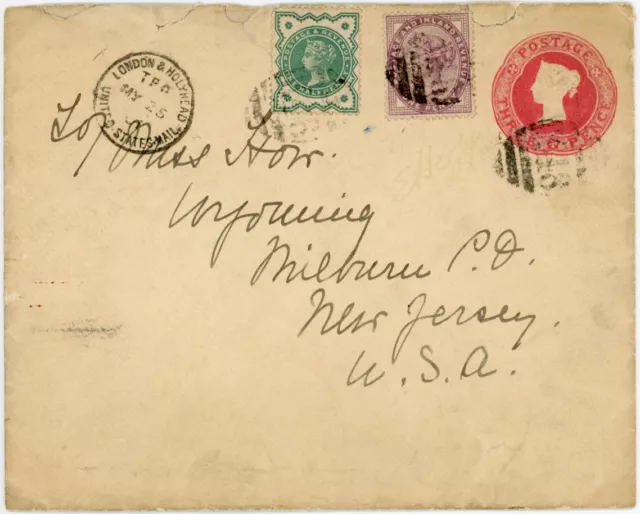 POSTAGE & REVENUE
HALFPENNY
POSTAGE AND INLAND REVENUE
POSTAGE
PENCE
LONDON & HOLYHEAD
T P O
MY 25
UNITED STATES MAIL
To Miss How.
Wyoming
Milburn P.O.
New Jersey.
U. S. A.